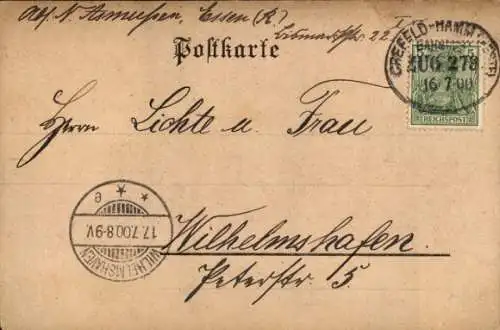 Abs. N. Asmussen, Essen (R)
Bismarckstr. 22 I
Postkarte
CREFELD-HAMM (WESTF)
BAHNPOST
ZUG 278
16 7 00
REICHSPOST
Herrn Lichte u. Frau
WILHELMSHAVEN
17.7.00.8-9V.
* * e
Wilhelmshafen.
Peterstr. 5